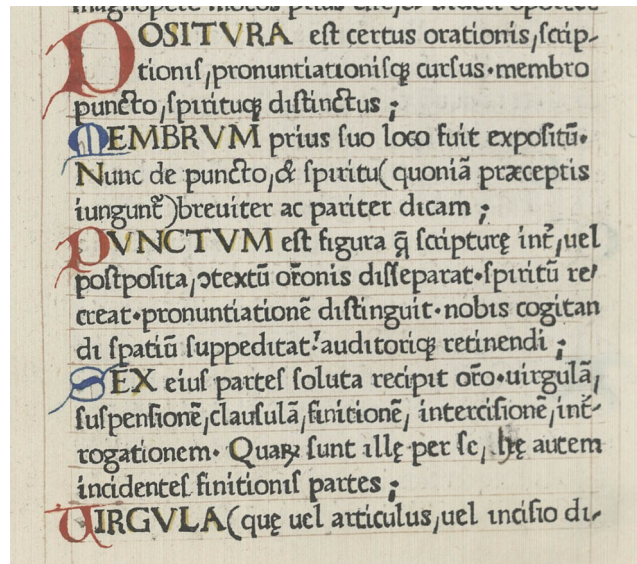 POSITVRA eſt certus orationis,ſcrip-
tioniſ,pronuntiationiſqꝫ curſus•membro
puncto,ſpirituqꝫ diſtinctus ;
MEMBRVM prius ſuo loco fuit expoſitū•
Nunc de puncto,& ſpiritu(quoniā præceptis
iungunt᷑)breuiter ac pariter dicam ;
PVNCTVM eſt figura q̄ ſcripturę int᷑,uel
poſtpoſita,ↄtextū or̄onis diſſeparat•ſpiritū re/
creat•pronuntiationē diſtinguit•nobis cogitan
di ſpatiū ſuppeditat?auditoriqꝫ retinendi ;
SEX eiuſ parteſ ſoluta recipit or̄o•uirgulā,
ſuſpenſionē,clauſulā,finitionē, interciſionē,int᷑-
rogationem• Quaꝝ ſunt illę per ſe, hę autem
incidenteſ finitioniſ partes ;
UIRGVLA(quę uel articulus,uel inciſio di-